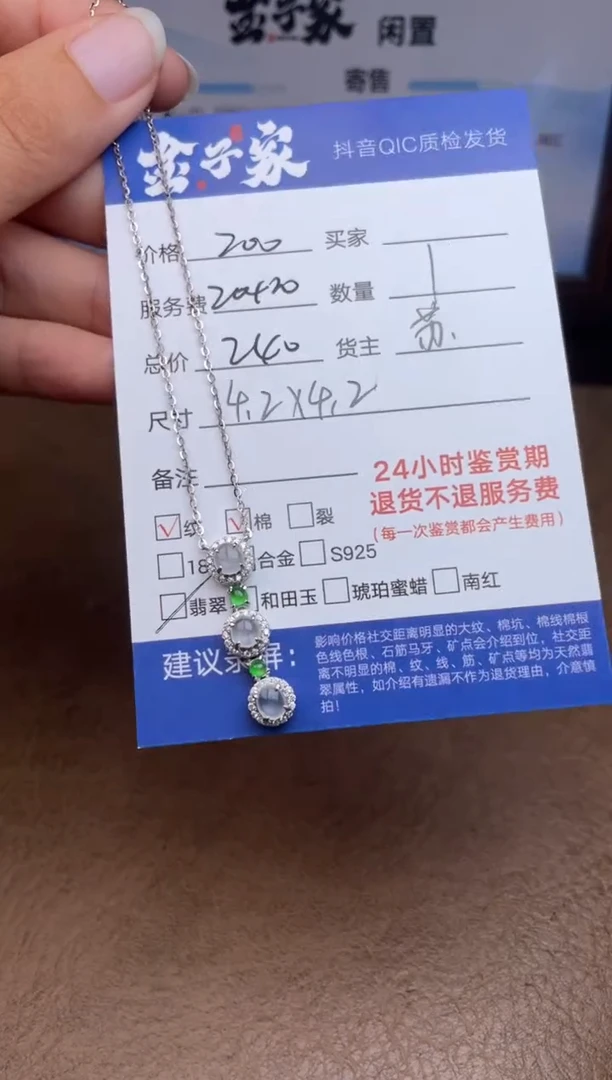 金子家 闲置
寄售
金子家 抖音QIC质检发货
价格 200 买家
服务费 20+20 数量 1
总价 240 货主 苏.
尺寸 4.2X4.2
备注
24小时鉴赏期
退货不退服务费
(每一次鉴赏都会产生费用)
纹 棉 裂
18 合金 S925
翡翠 和田玉 琥珀蜜蜡 南红
建议录屏：
影响价格社交距离明显的大纹、棉坑、棉线棉根
色线色根、石筋马牙、矿点会介绍到位，社交距
离不明显的棉、纹、线、筋、矿点等均为天然翡
翠属性，如介绍有遗漏不作为退货理由，介意慎
拍！